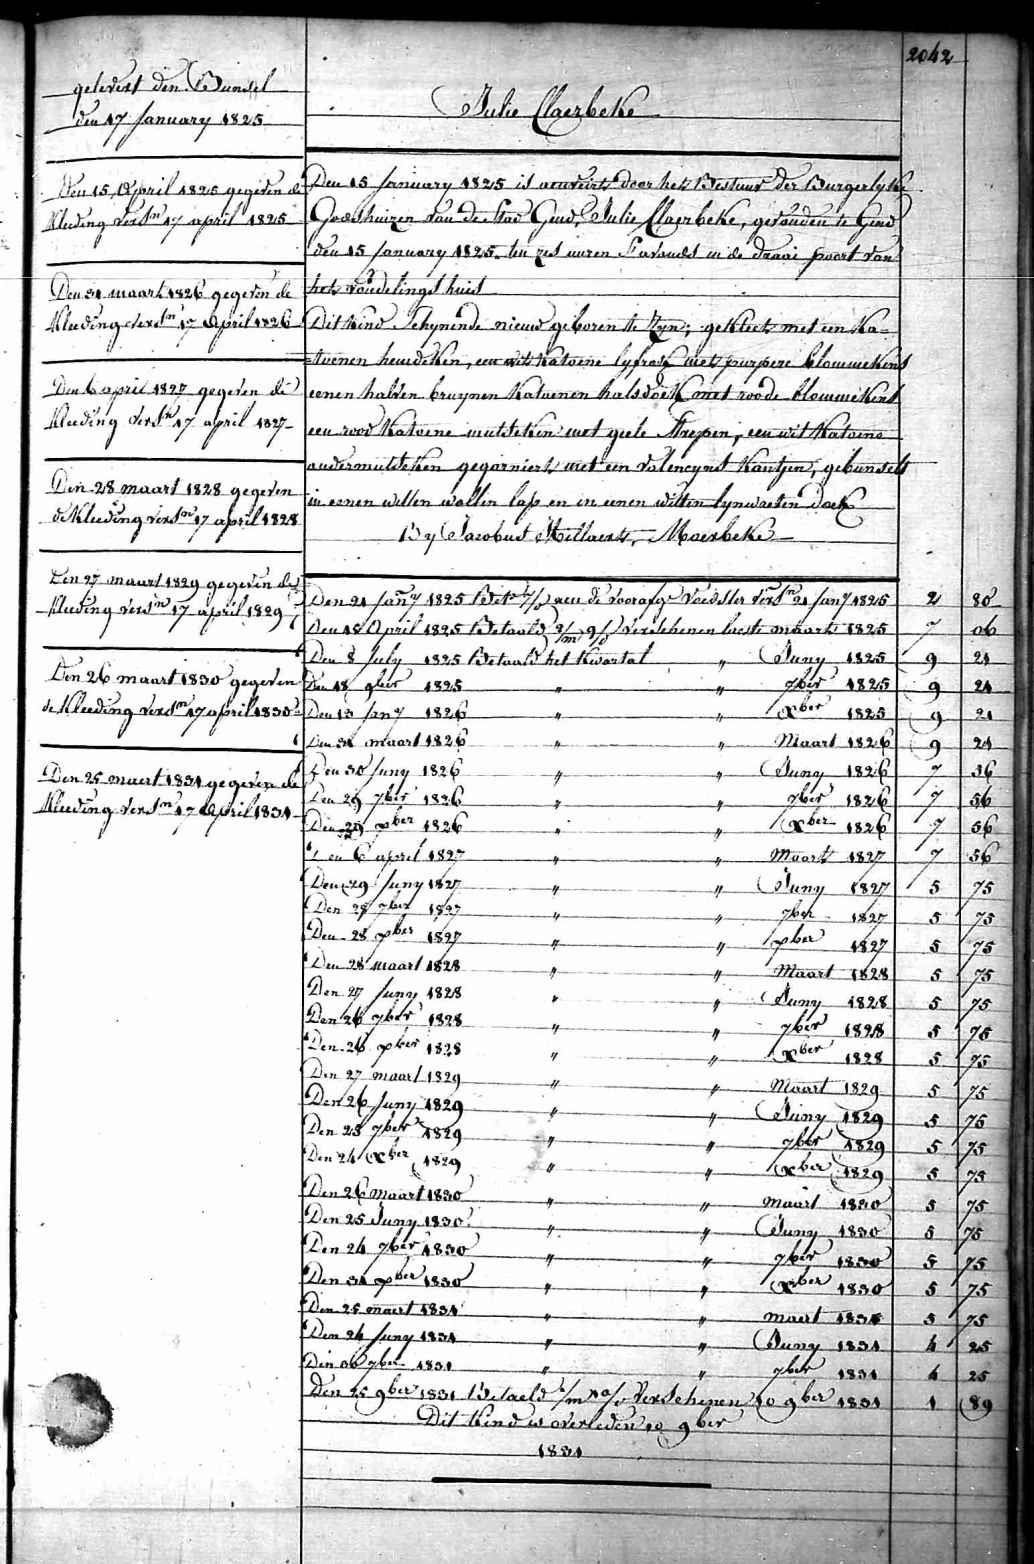 2042
gelevert den Bunsel
den 17 January 1825
Den 15 April 1825 gegeven de
Kleeding versn 17 april 1825
Den 31 maart 1826 gegeven de
Kleeding versn 17 April 1826
Den 6 april 1827 gegeven de
Kleeding versn 17 april 1827
Den 28 maart 1828 gegeven
de Kleeding versn 17 april 1828
Den 27 maart 1829 gegeven de
Kleeding versn 17 april 1829
Den 26 maart 1830 gegeven
de Kleeding versn 17 april 1830
Den 25 maert 1831 gegeven de
Kleeding versn 17 April 1831
Julie Claerbeke
Den 15 January 1825 is aenveirt door het Bestuur der Burgerlyke
Godshuizen van de Stad Gend, Julie Claerbeke, gevonden te Gend
den 15 January 1825 ten zes uuren s'avonds in de draai poort van
het vondelingshuis
Dit kind schynende nieuw geboren te zyn, gekleet met een ka-
toenen hemdeken, een wit katoene lyfrok met purpere blommekens
eenen halven bruynen katoenen halsdoek met roode blommekens
een rood katoene mutsken met geele streepen, een wit katoene
ondermutsken gegarniert met een valencyns kantjen, gebunselt
in eenen witten wollen lap en in eenen witten lynwaeten doek
By Jacobus Hillaert, Moerbeke
Den 21 Jany 1825 Bet aen de voorafge voedster versn 21 Jany 1825 2 80
Den 18 April 1825 Betaald verschenen leste maart 1825 7 06
Den 8 July 1825 Betaald het kwartal " Juny 1825 9 21
Den 18 9ber 1825 " " 7ber 1825 9 21
Den 13 Jany 1826 " " Xber 1825 9 21
Den 31 maart 1826 " " Maart 1826 9 21
Den 30 Juny 1826 " " Juny 1826 7 56
Den 29 7ber 1826 " " 7ber 1826 7 56
Den 29 xber 1826 " " Xber 1826 7 56
Den 6 april 1827 " " Maart 1827 7 56
Den 29 Juny 1827 " " Juny 1827 5 75
Den 28 7ber 1827 " " 7ber 1827 5 75
Den 28 xber 1827 " " xber 1827 5 75
Den 28 maart 1828 " " Maart 1828 5 75
Den 27 Juny 1828 " " Juny 1828 5 75
Den 26 7ber 1828 " " 7ber 1828 5 75
Den 26 xber 1828 " " Xber 1828 5 75
Den 27 maart 1829 " " Maart 1829 5 75
Den 26 Juny 1829 " " Juny 1829 5 75
Den 25 7ber 1829 " " 7ber 1829 5 75
Den 24 Xber 1829 " " Xber 1829 5 75
Den 26 maart 1830 " " maart 1830 5 75
Den 25 Juny 1830 " " Juny 1830 5 75
Den 24 7ber 1830 " " 7ber 1830 5 75
Den 31 xber 1830 " " Xber 1830 5 75
Den 25 maert 1831 " " maert 1831 5 75
Den 24 Juny 1831 " " Juny 1831 4 25
Den 30 7ber 1831 " " 7ber 1831 4 25
Den 25 9ber 1831 Betaeld verschenen 10 9ber 1831 1 89
Dit kind is overleden 10 9ber
1831